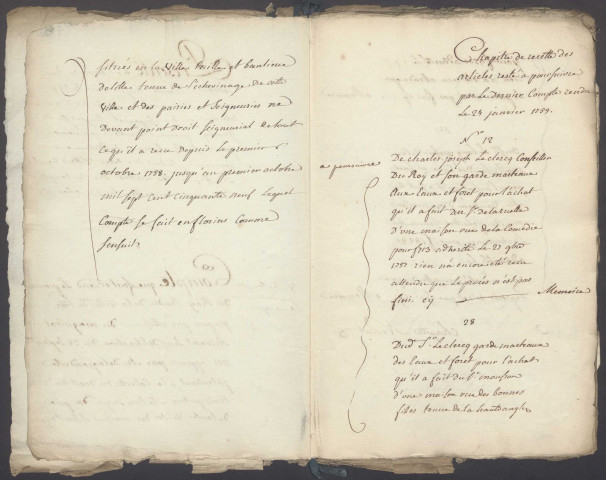 situées en la Ville taille et banlieue
de lille tenue de l'echevinage de cette
Ville et des pairies et Seigneuries ne
Devant point Droit Seigneurial de tout
ce qu'il a recu depuis le premier
octobre 1758. jusqu'au premier octobre
mil sept cent cinquante neuf Lequel
Compte se fait en florins Comme
sensuit
Chapitre de recette des
articles resté a poursuivre
par le Dernier Compte rendu
Le 24 janvier 1759.
N° 12
a poursuivre
De charles joseph Le clercq Conseiller
Du Roy et son garde marteaux
Aux Eaux et foret pour l'achat
qu'il a fait du Sr. Delaruelle
D'une maison rue de la Comedie
pour f. adherité Le 27 9bre
1751 rien n'a encore eté recu
attendu que Le procès n'est pas
fini. cy Memoire
28
Dud. Sr. Le clercq garde marteaux
des Eaux et foret pour l'achat
qu'il a fait du Sr. mousson
D'une maison rue des bonnes
filles tenue de la